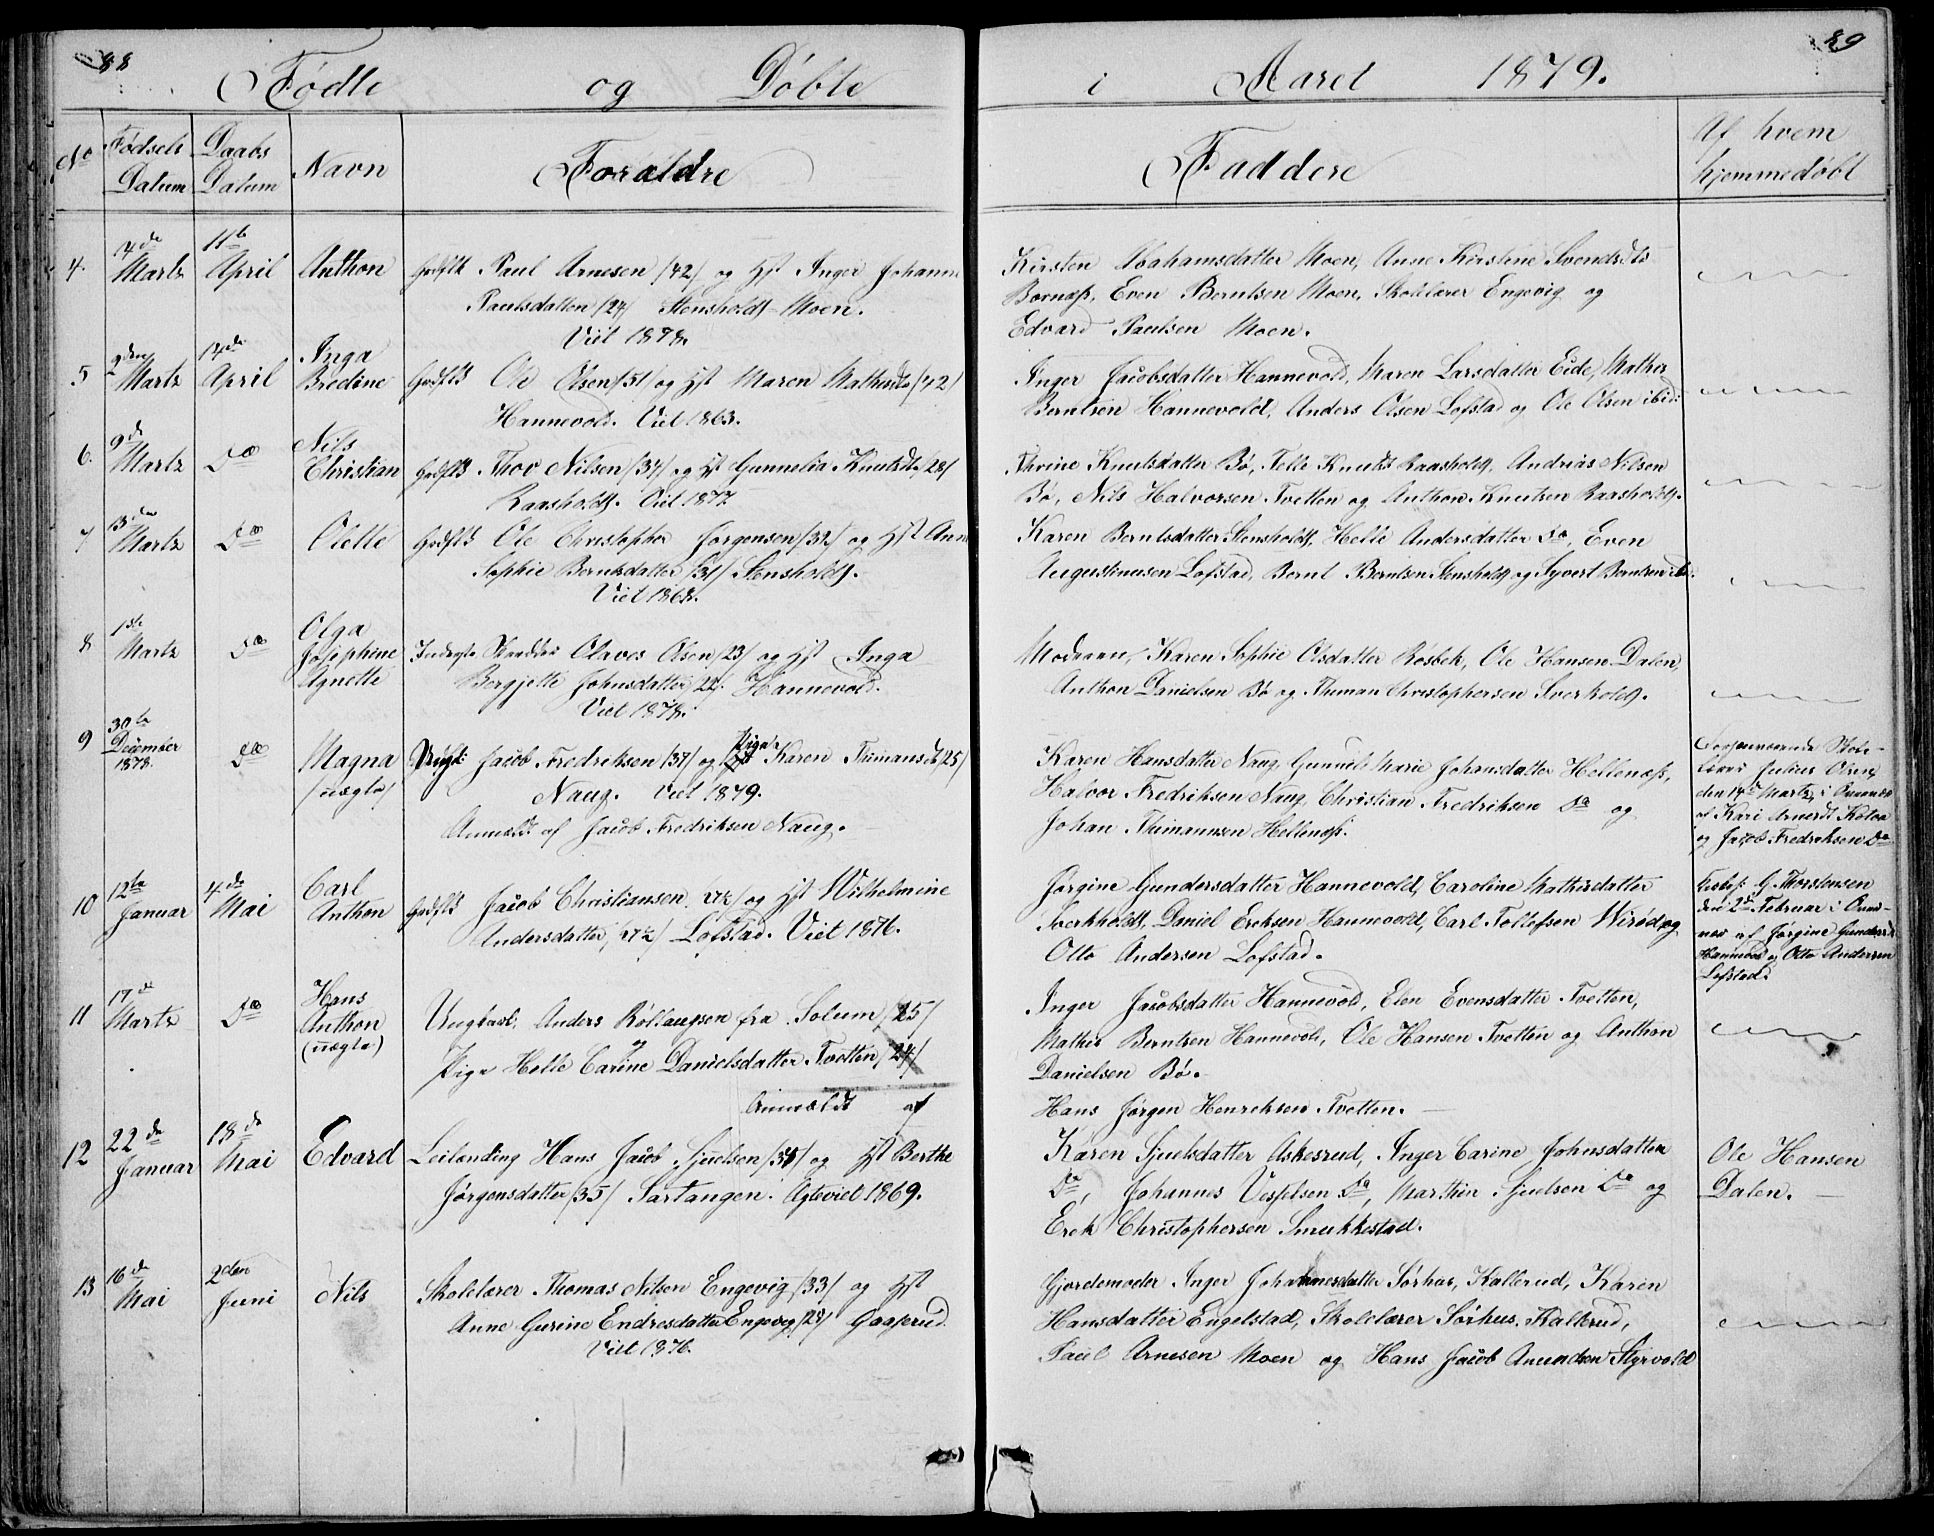 88
89
Fødte og Døbte i Aaret 1879.
No Fødsels Datum Daabs Datum Navn Forældre Faddere Af hvem hjemmedøbt
4. 4de Martz 11te April Anthon Gaardbr Paul Arnesen /42/ og Hst Inger Johanne
Paulsdatter /24/ Stensholdt-Moen.
Viet 1878.
Kirsten Abrahamsdatter Moen, Anne Kirstine Svendsdtr
Bornæss, Even Berntsen Moen, Skolelærer Engevig og
Edvard Paulsen Moen.
5 2den Martz 14de April Inga Bredine Gdbr Ole Olsen /51/ og Hst Maren Mathisdtr /42/
Hannevold. Viet 1863.
Inger Jacobsdatter Hannevold, Maren Larsdatter Eide, Mathis
Berntsen Hannevold, Anders Olsen Lofstad og Ole Olsen ibid:
6. 9de Martz Do Nils Christian Thov Nilsen /37/ og Hst Gunnelia Knutsdtr /28/
Raasholdt. Viet 1877
Thrine Knutsdatter Bø, Helle Knutsdt Raasholdt, Andrias Nilsen
Bø, Nils Halvorsen Tvetten og Anthon Knutsen Raasholdt.
7 13de Martz Do Olette Ole Christopher Jørgensen /32/ og Hst Anne
Sophie Berntsdatter /31/ Stensholdt.
Viet 1868.
Karen Berntsdatter Stensholdt, Helle Andersdatter Do, Even
Augustinusen Lofstad, Bernt Berntsen Stensholdt og Syvert Berntsen ibid.
8 1ste Martz Do Olga Josephine Agnette Inderste Skrædder Olaves Olsen /23/ og Hst Inga
Bergjette Johnsdatter /22/ Hannevold.
Viet 1878.
Moderen, Karen Sophie Olsdatter Røsbek, Ole Hansen Dalen,
Anthon Danielsen Bø og Thuman Christophersen Sverholdt.
9 30te December 1878. Do Magna /uægte/ Ungk: Jacob Fredriksen /37/ og Pige Karen Thimansdt /25/
Naug. Viet 1879.
Anmeldt af Jacob Fredriksen Naug.
Karen Hansdatter Naug, Gunnild Marie Johansdatter Hellenæss,
Halvor Fredriksen Naug, Christian Fredriksen Do og
Johan Thimannsen Hellenæss.
Forhenværende Skole-
lærer Julius Olsen
den 14de Martz, i Overvær
af Kari Arnesdt Kolva
og Jacob Fredriksen Do
10 12te Januar 4de Mai Carl Anthon Jacob Christiansen /27½/ og Hst Wilhelmine
Andersdatter /27½/ Lofstad. Viet 1876.
Jørgine Gundersdatter Hannevold, Caroline Mathisdatter
Sverkholdt, Daniel Eriksen Hannevold, Carl Tollefsen Wirød og
Otto Andersen Lofstad.
G. Thorstensen
den 2de Februar i Over-
vær af Jørgine Gundersdt
Hannevold og Otto Andersen
Lofstad.
11 17de Martz Do Hans Anthon (uægte) Ungkarl: Anders Rollaugsen fra Solum /25/
Pige Helle Carine Danielsdatter Tvetten /24/
Anmeldt af
Inger Jacobsdatter Hannevold, Elen Evensdatter Tvetten,
Mathis Berntsen Hannevold, Ole Hansen Tvetten og Anthon
Danielsen Bø.
Hans Jørgen Henriksen Tvetten.
12 22de Januar 18de Mai Edvard Leilending Hans Jacob Sjulsen /35/ og Hst Berthe
Jørgensdatter /35/ Sartangen. Ægteviet 1869.
Karen Sjulsdatter Askesrud, Inger Carine Johnsdatter
Do, Johannes Vesselsen Do, Marthin Sjulsen Do og
Erek Christophersen Smukkestad.
Ole Hansen
Dalen.
13 16de Mai 2den Juni Nils Skolelærer Thomas Nilsen Engevig /33/ og Hst
Anne Gurine Endresdatter Engevig /28/ Gaaserud.
Viet 1876.
Gjordemoder Inger Johannesdatter Sørhus, Kallerud, Karen
Hansdatter Engelstad, Skolelærer Sørhus. Kallerud,
Paul Arnesen Moen og Hans Jacob Anundsen Styrvold